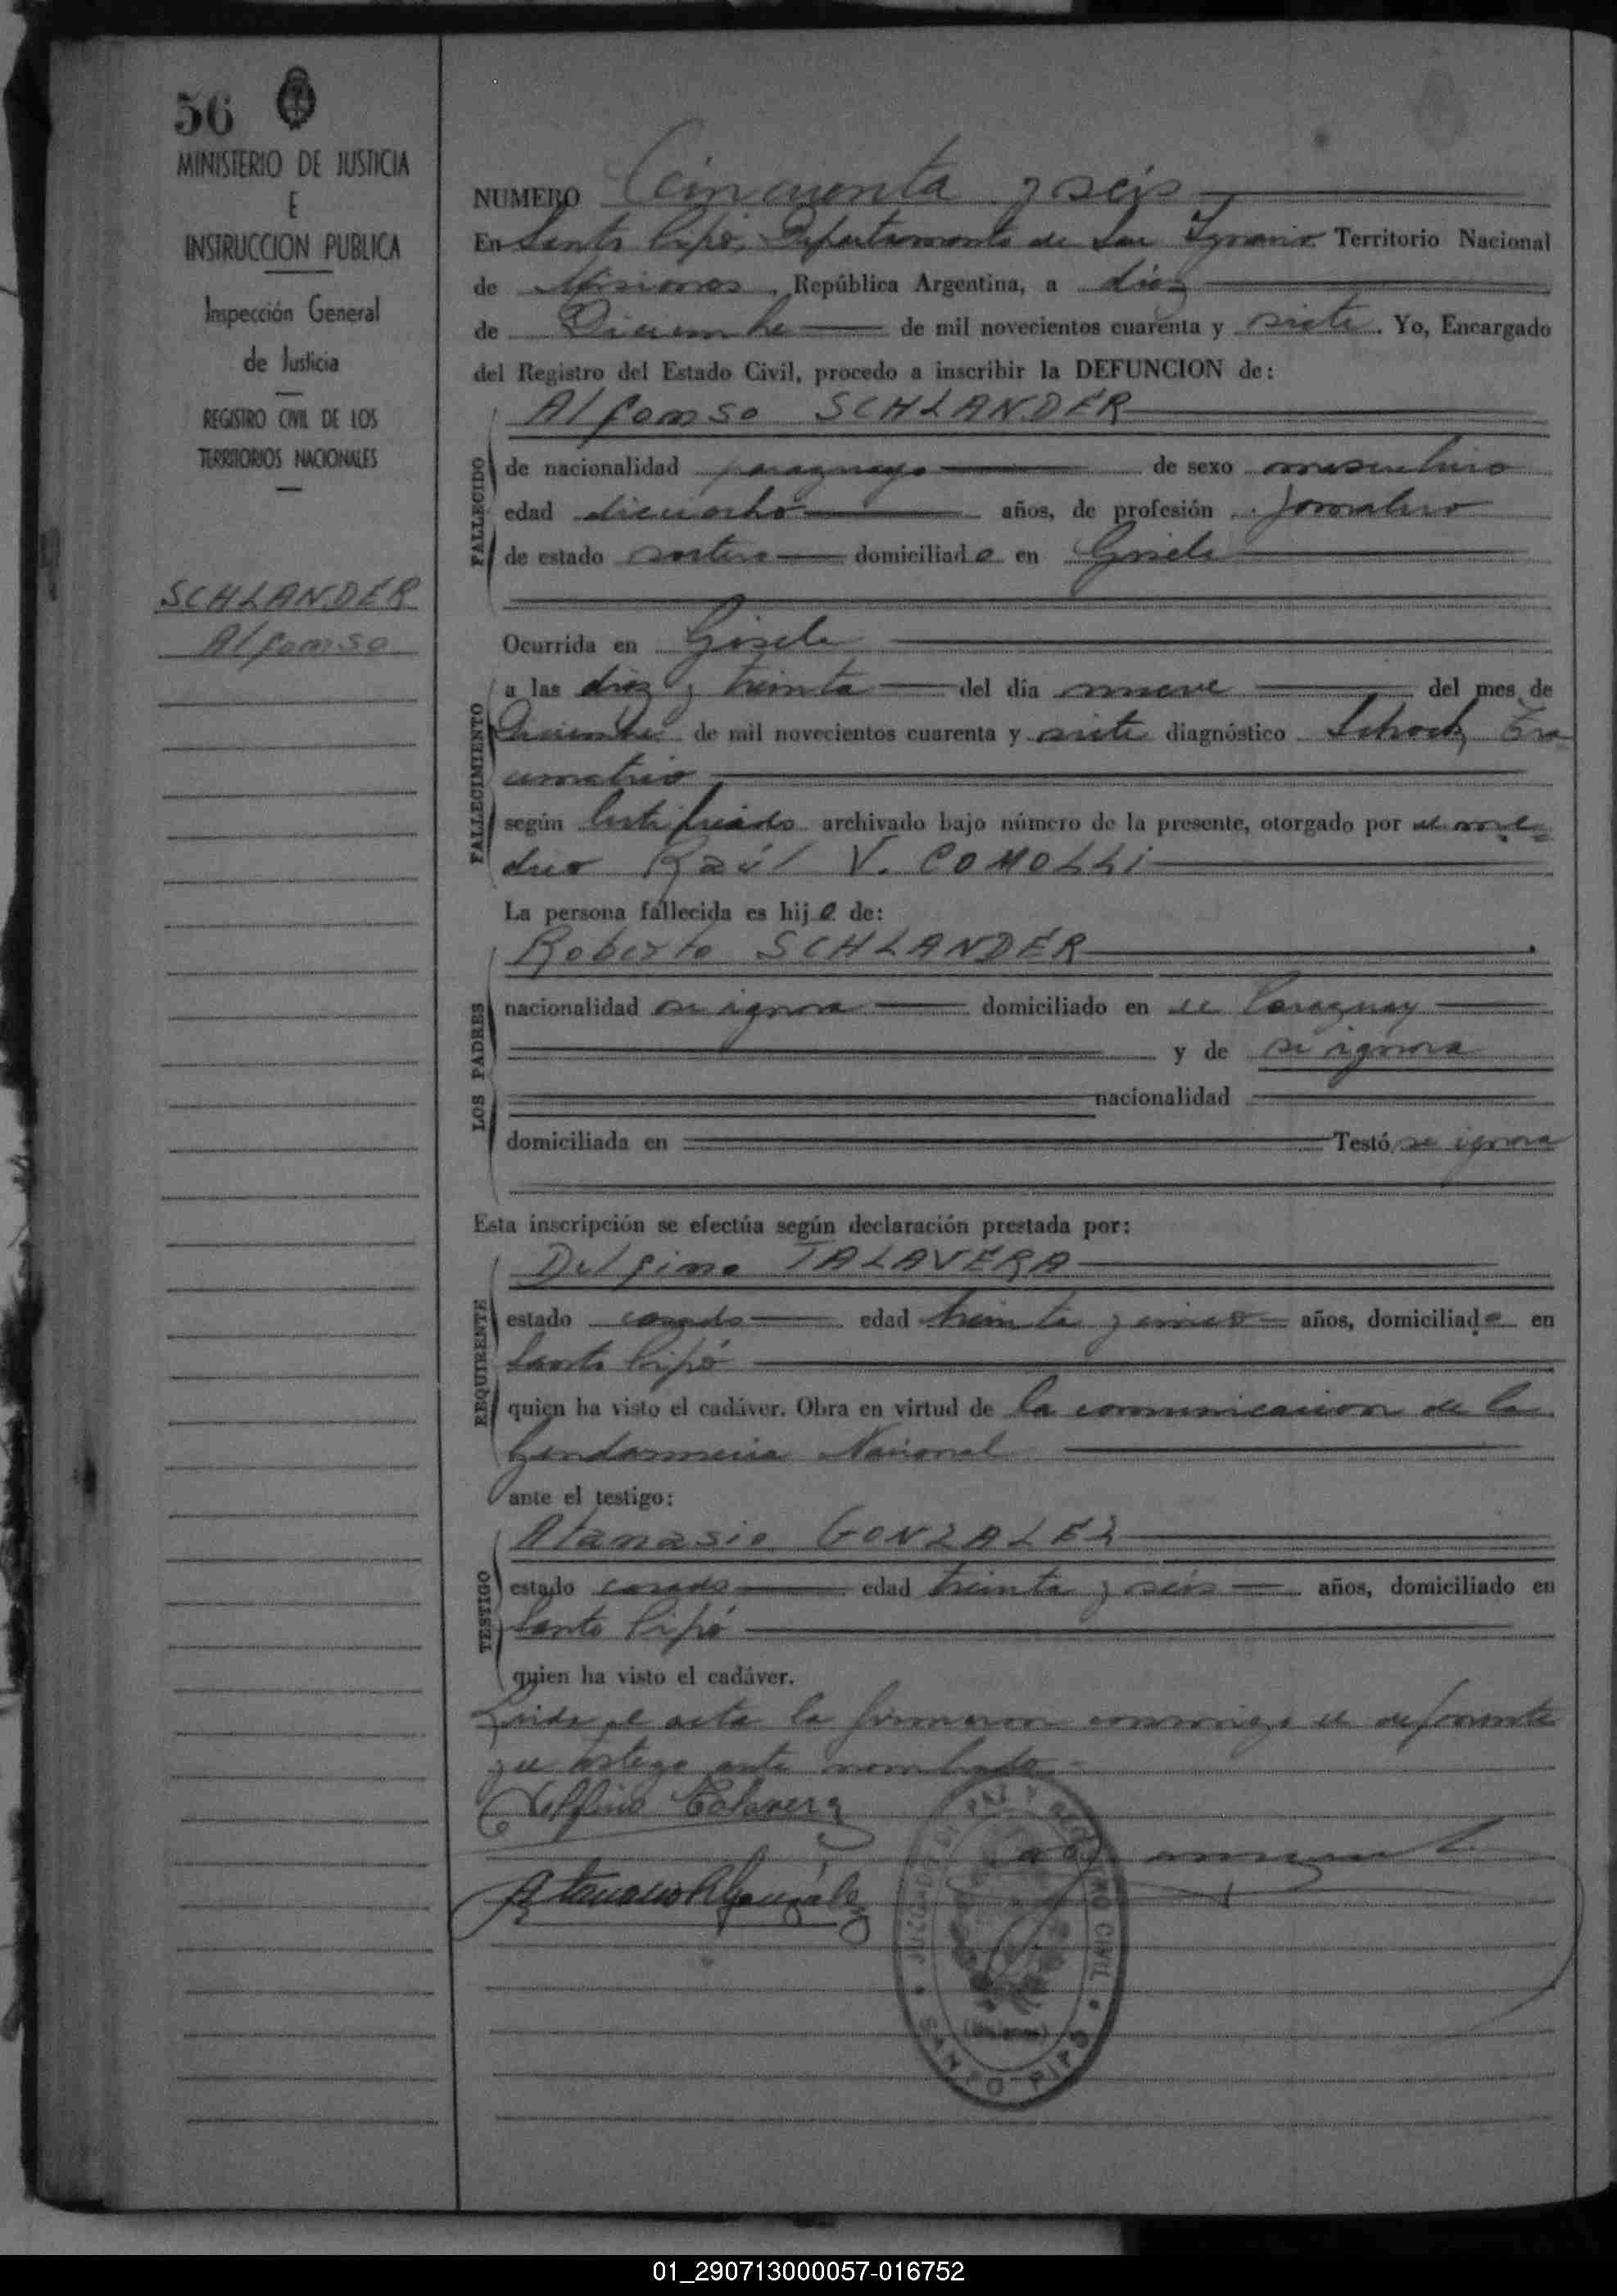 56
MINISTERIO DE JUSTICIA
E
INSTRUCCION PUBLICA
Inspección General
de Justicia
REGISTRO CIVIL DE LOS
TERRITORIOS NACIONALES
SCHLANDER
Alfonso
NUMERO Cincuenta y seis
En Santo Pipó, Departamento de San Ignacio Territorio Nacional
de Misiones, República Argentina, a diez
de Diciembre de mil novecientos cuarenta y siete. Yo, Encargado
del Registro del Estado Civil, procedo a inscribir la DEFUNCION de:
Alfonso SCHLANDER
FALLECIDO
de nacionalidad paraguayo de sexo masculino
edad dieciocho años, de profesión jornalero
de estado soltero domiciliado en Gisela
Ocurrida en Gisela
FALLECIMIENTO
a las diez y treinta del día nueve del mes de
Diciembre de mil novecientos cuarenta y siete diagnóstico Schock Tra
umatico
según Certificado archivado bajo número de la presente, otorgado por el me
dico Raúl V. COMOLLI
La persona fallecida es hijo de:
LOS PADRES
Roberto SCHLANDER
nacionalidad se ignora domiciliado en el Paraguay
y de se ignora
nacionalidad
domiciliada en Testó se ignora
Esta inscripción se efectúa según declaración prestada por:
REQUIRENTE
Delfino TALAVERA
estado casado edad treinta y cinco años, domiciliado en
Santo Pipó
quien ha visto el cadáver. Obra en virtud de la comunicacion de la
Gendarmeria Nacional
ante el testigo:
TESTIGO
Atanasio GONZALEZ
estado casado edad treinta y seis años, domiciliado en
Santo Pipó
quien ha visto el cadáver.
Leida el acta la firmaron conmigo el deponente
y el testigo ante nombrado.=
Delfino Talavera
Atanacio González
JUZGADO DE PAZ Y REGISTRO CIVIL
SANTO PIPO
(Misiones)
01_290713000057-016752